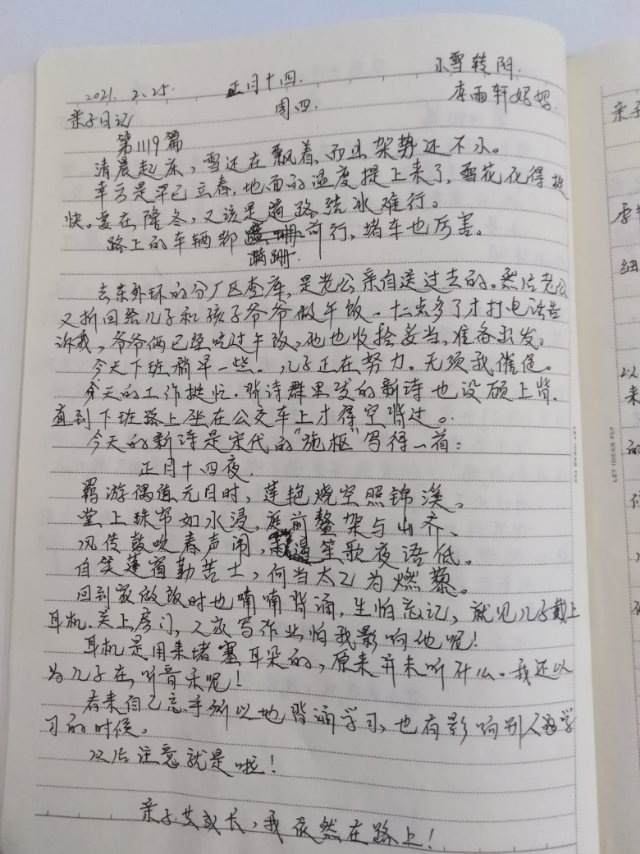 2021. 2. 25. 正月十四 小雪转阴.
周四 李雨轩妈妈.
亲子日记
第1119篇
清晨起床，雪还在飘着，而且架势还不小。
幸亏是早已立春，地面的温度提上来了，雪花化得挺
快。要在隆冬，又该是道路结冰难行。
路上的车辆都 前行，堵车也厉害。
蹒跚
去东外环的分厂区查库，是老公亲自送过去的。然后老公
又折回给儿子和孩子爷爷做午饭。十二点多了才打电话告
诉我，爷爷俩已经吃过午饭，他也收拾妥当，准备出发，
今天下班稍早一些。儿子正在努力。无须我催促。
今天的工作挺忙。背诗群里发的新诗也没顾上背，
直到下班路上坐在公交车上才得空背过。
今天的新诗是宋代的"施枢"写得一首：
正月十四夜.
羁游偶值元日时，莲艳烧空照锦溪。
堂上珠帘如水浸，庭前鳌架与山齐、
风传鼓吹春声闹，月过笙歌夜语低。
自笑蓬窗勤苦士，何当太乙为燃藜。
回到家做饭时也喃喃背诵，生怕忘记，就见儿子戴上
耳机。关上房门，又该写作业怕我影响他呢！
耳机是用来堵塞耳朵的，原来并未听什么。我还以
为儿子在听音乐呢！
看来自己忘乎所以地背诵学习，也有影响别人学
习的时候。
以后注意就是啦！
亲子共成长，我依然在路上！
LET IDEAS FLY
LET IDEAS FLY
亲子
李
细
以
来
的